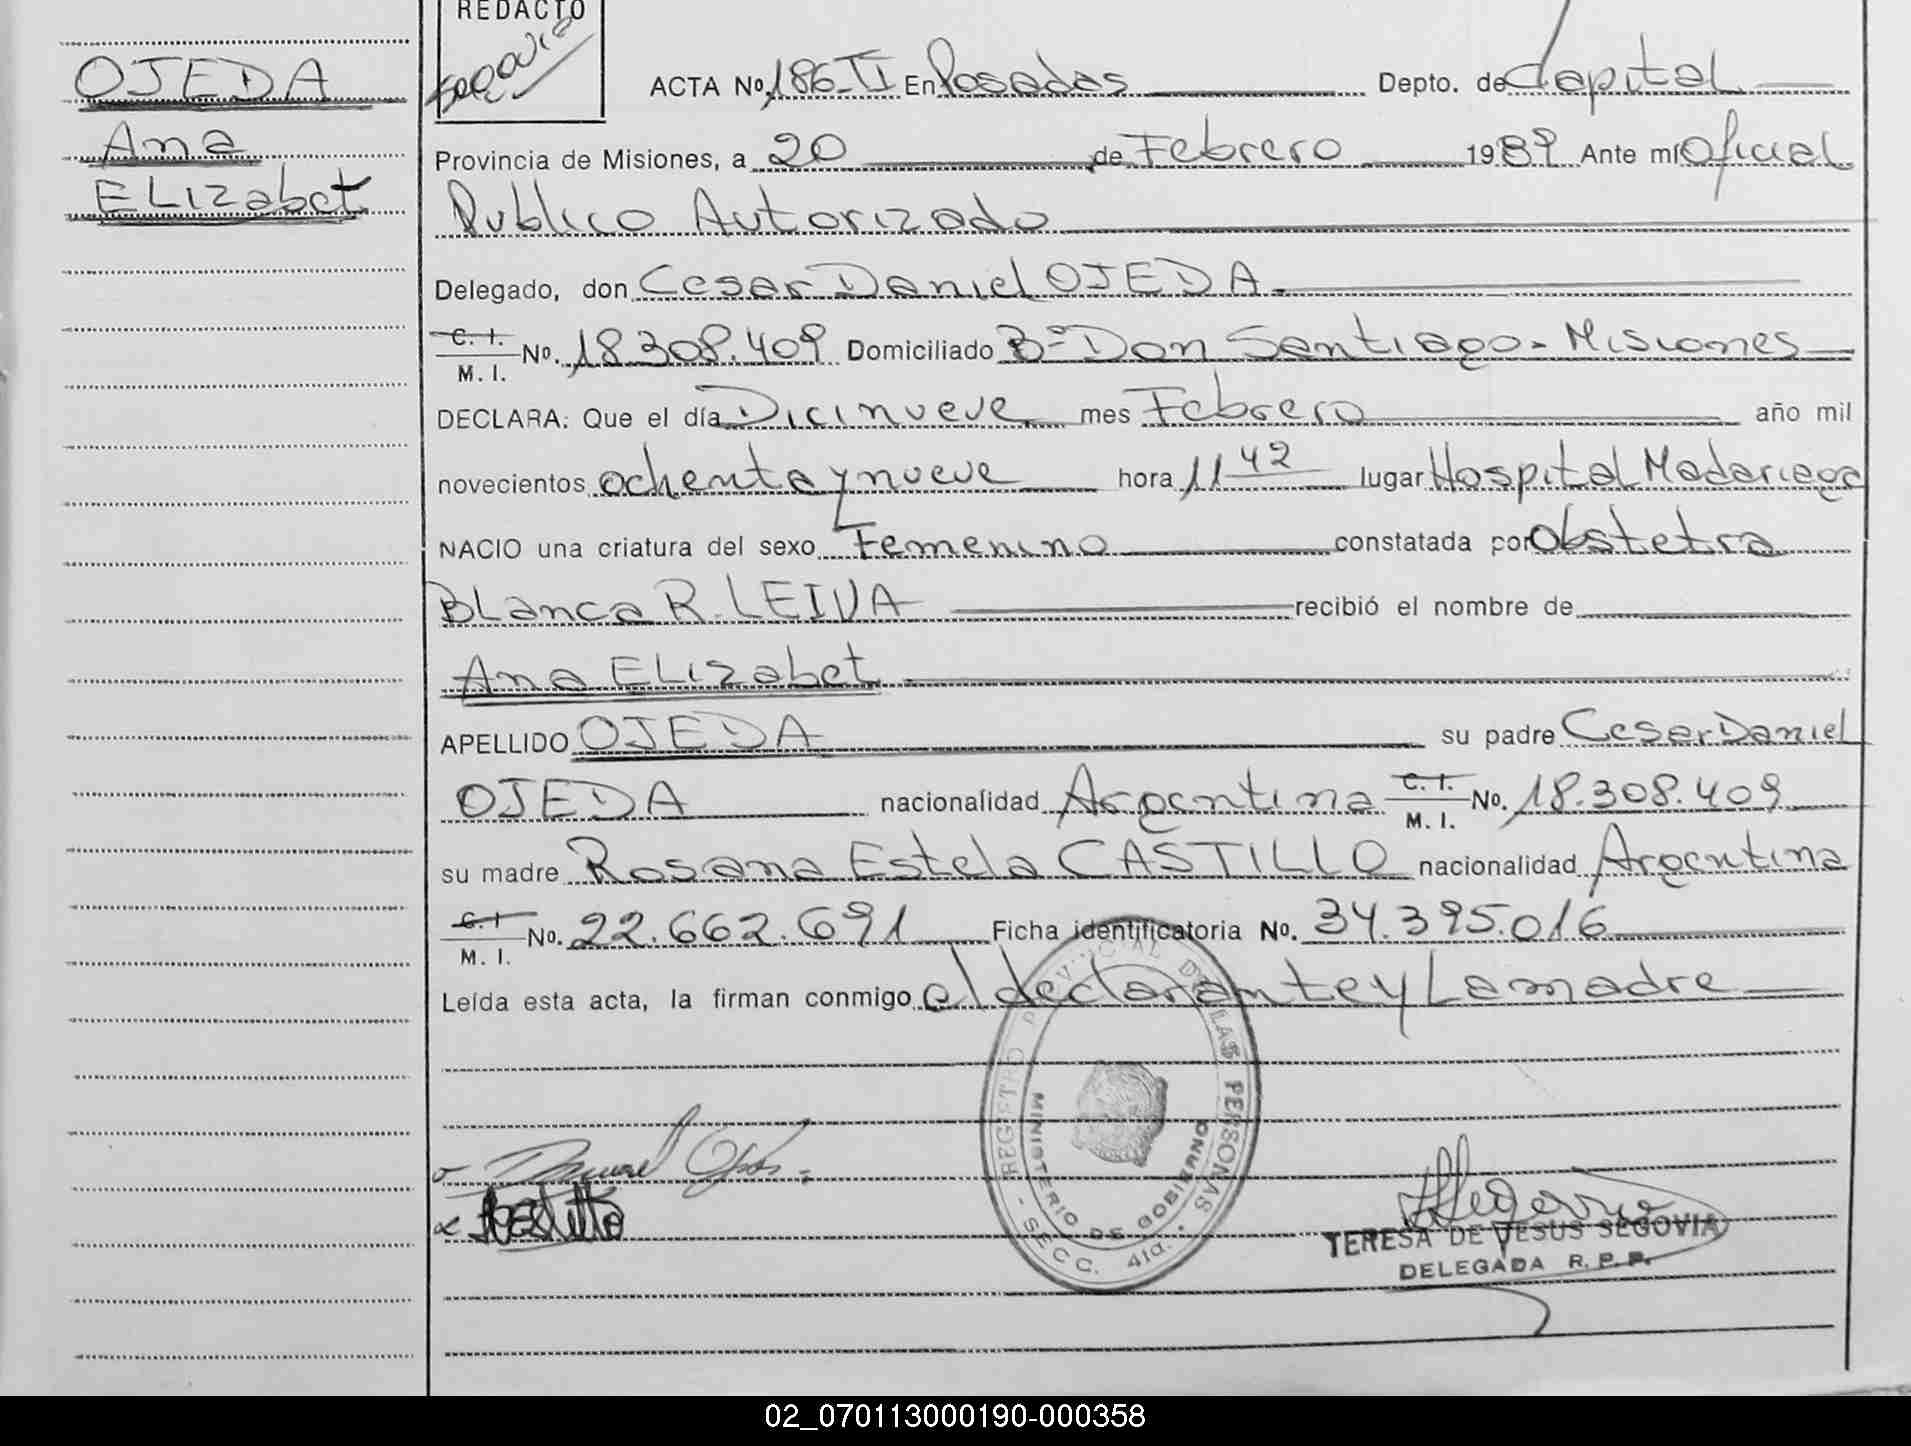 OJEDA
Ana
ELizabet
REDACTO
Segovia
ACTA No. 186-II En Posadas Depto. de Capital
Provincia de Misiones, a 20 de Febrero 1989 Ante mí Oficial
Publico Autorizado
Delegado, don Cesar Daniel OJEDA.
C. I. M. I. No. 18.308.409 Domiciliado Bº Don Santiago - Misiones
DECLARA: Que el día Dicinueve mes Febrero año mil
novecientos ochenta y nueve hora 11 42 lugar Hospital Madariaga
NACIO una criatura del sexo Femenino constatada por Obstetra
BLanca R. LEIVA recibió el nombre de
Ana ELizabet
APELLIDO OJEDA su padre Cesar Daniel
OJEDA nacionalidad Argentina C. I. M. I. No. 18.308.409
su madre Rosana Estela CASTILLO nacionalidad Argentina
C. I M. I. No. 22.662.691 Ficha identificatoria No. 34.395.016
Leída esta acta, la firman conmigo el declarante y La madre
REGISTRO PROVINCIAL DE LAS PERSONAS
MINISTERIO DE GOBIERNO
- SECC. 41a. -
TERESA DE JESUS SEGOVIA
DELEGADA R. P. P.
02_070113000190-000358